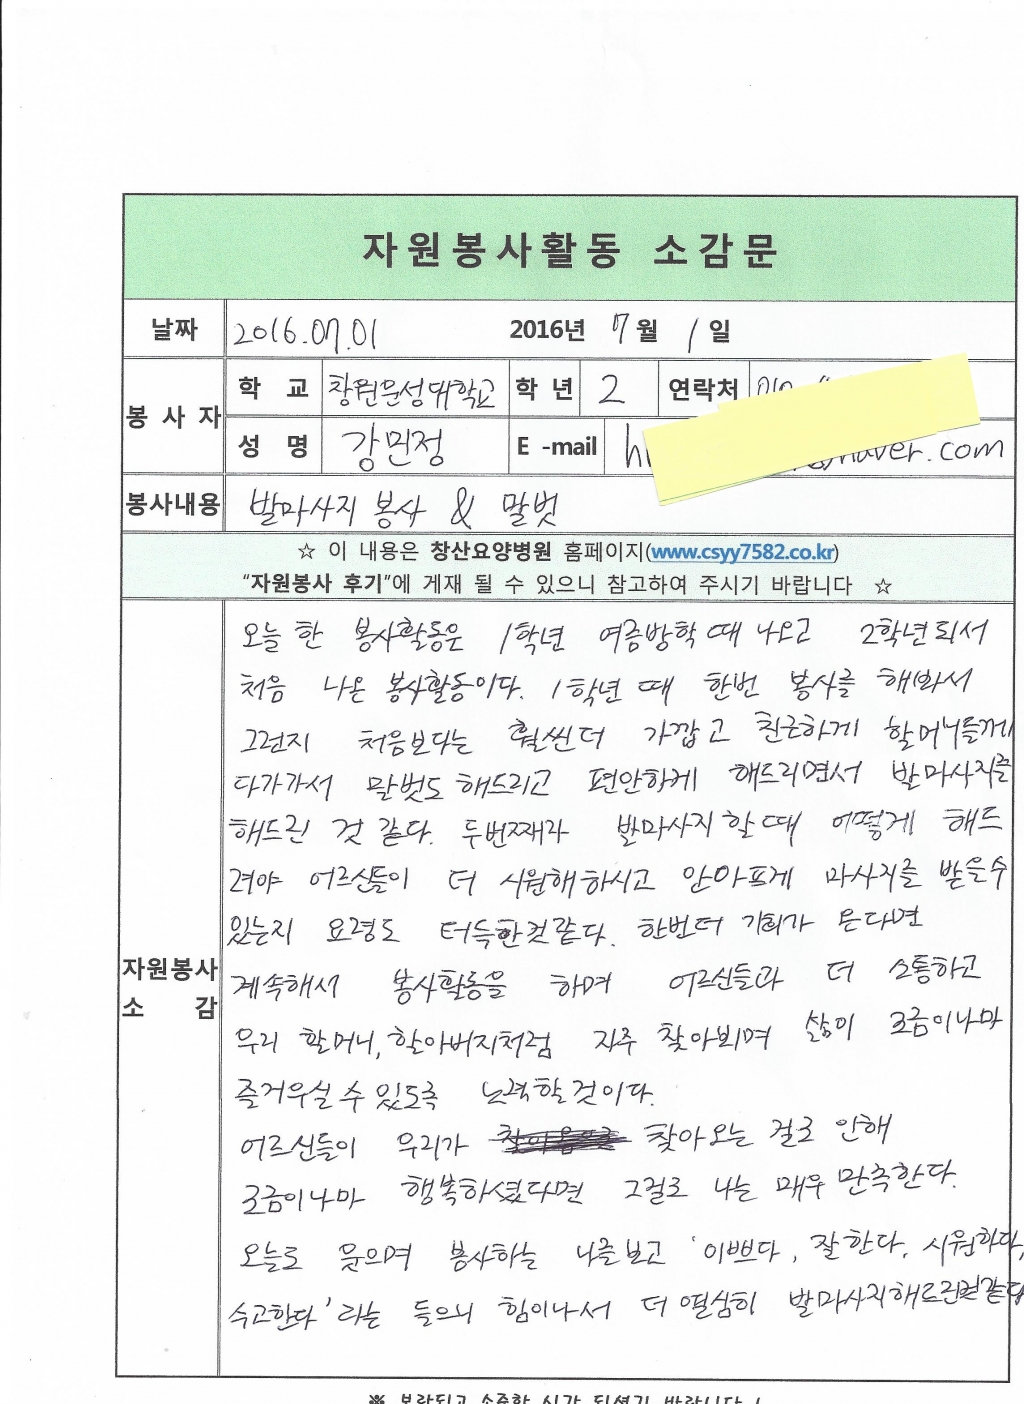 자원봉사활동 소감문
날짜 2016.07.01 2016년 7월 1일
봉사자 학교 창원문성대학교 학년 2 연락처 010
성명 강민정 E-mail h naver.com
봉사내용 발마사지 봉사 & 말벗
☆ 이 내용은 창산요양병원 홈페이지(www.csyy7582.co.kr)
“자원봉사 후기”에 게재 될 수 있으니 참고하여 주시기 바랍니다 ☆
자원봉사 소감
오늘 한 봉사활동은 1학년 여름방학 때 나오고 2학년 되서
처음 나온 봉사활동이다. 1학년 때 한번 봉사를 해봐서
그런지 처음보다는 훨씬더 가깝고 친근하게 할머니들께
다가가서 말벗도 해드리고 편안하게 해드리면서 발마사지를
해드린 것 같다. 두번째라 발마사지 할 때 어떻게 해드
려야 어르신들이 더 시원해 하시고 안아프게 마사지를 받을수
있는지 요령도 터득한것같다. 한번더 기회가 된다면
계속해서 봉사활동을 하며 어르신들과 더 소통하고
우리 할머니, 할아버지처럼 자주 찾아뵈며 삶이 조금이나마
즐거우실 수 있도록 노력할 것이다.
어르신들이 우리가 찾아오는 걸로 인해
조금이나마 행복하셨다면 그걸로 나는 매우 만족한다.
오늘도 웃으며 봉사하는 나를보고 '이쁘다, 잘한다, 시원하다,
수고한다' 라는 들으니 힘이나서 더 열심히 발마사지해드린것같다
※ 보람되고 소중한 시간 되셨기 바랍니다 !